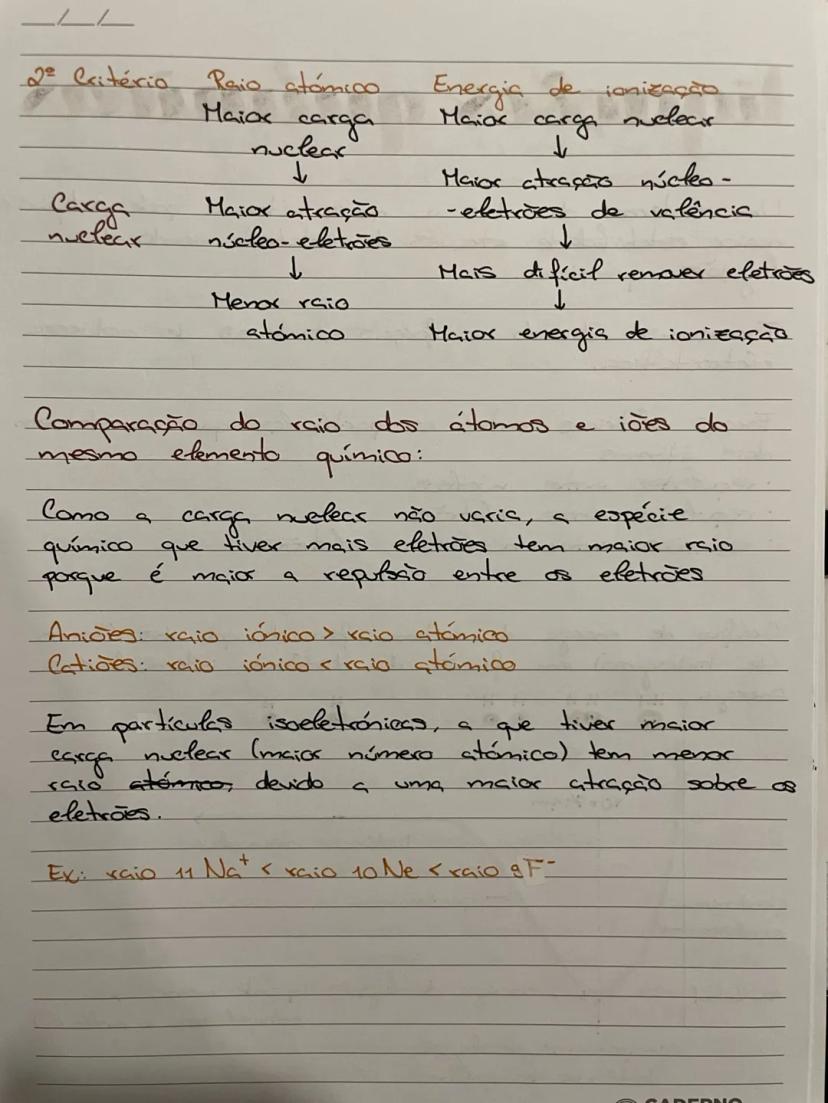 __/__/__
2º Critério Raio atómico Energia de ionização
Maior carga Maior carga nuclear
nuclear ↓
↓ Maior atração núcleo-
Carga Maior atração -eletrões de valência
nuclear núcleo-eletrões ↓
↓ Mais difícil remover eletrões
Menor raio ↓
atómico Maior energia de ionização
Comparação do raio dos átomos e iões do
mesmo elemento químico:
Como a carga nuclear não varia, a espécie
químico que tiver mais eletrões tem maior raio
porque é maior a repulsão entre os eletrões
Aniões: raio iónico > raio atómico
Catiões: raio iónico < raio atómico
Em partículas isoeletrónicas, a que tiver maior
carga nuclear (maior número atómico) tem menor
raio atómico, devido a uma maior atração sobre os
eletrões.
Ex: raio 11 Na⁺ < raio 10 Ne < raio 9 F⁻
CADERNO